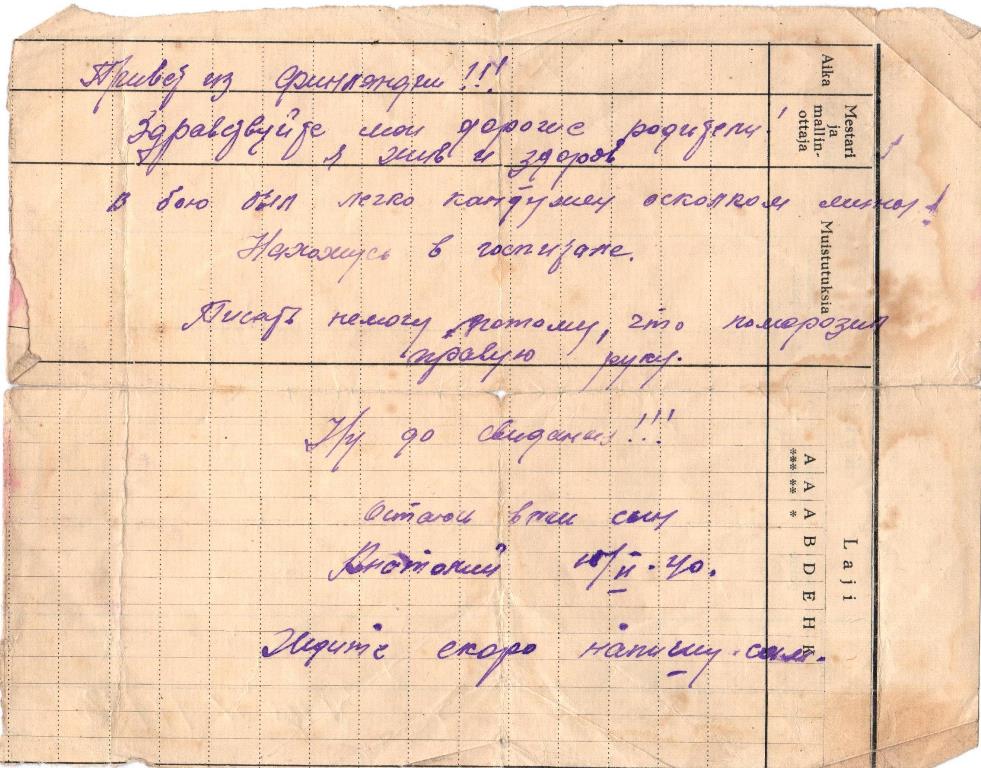 Привет из Финляндии!!!
Здравствуйте мои дорогие родители!
я жив и здоров
В бою был легко кантужен осколком мины!
Нахожусь в госпитале.
Писать немогу потому, что поморозил
правую руку.
Ну до свидания!!!
Остаюсь ваш сын
Анатолий 10/II-40.
Ждите скоро напишу. сам.
Aika
Mestari
ja
mallin-
ottaja
Muistutuksia
Laji
A A A B D E H K
*** ** *